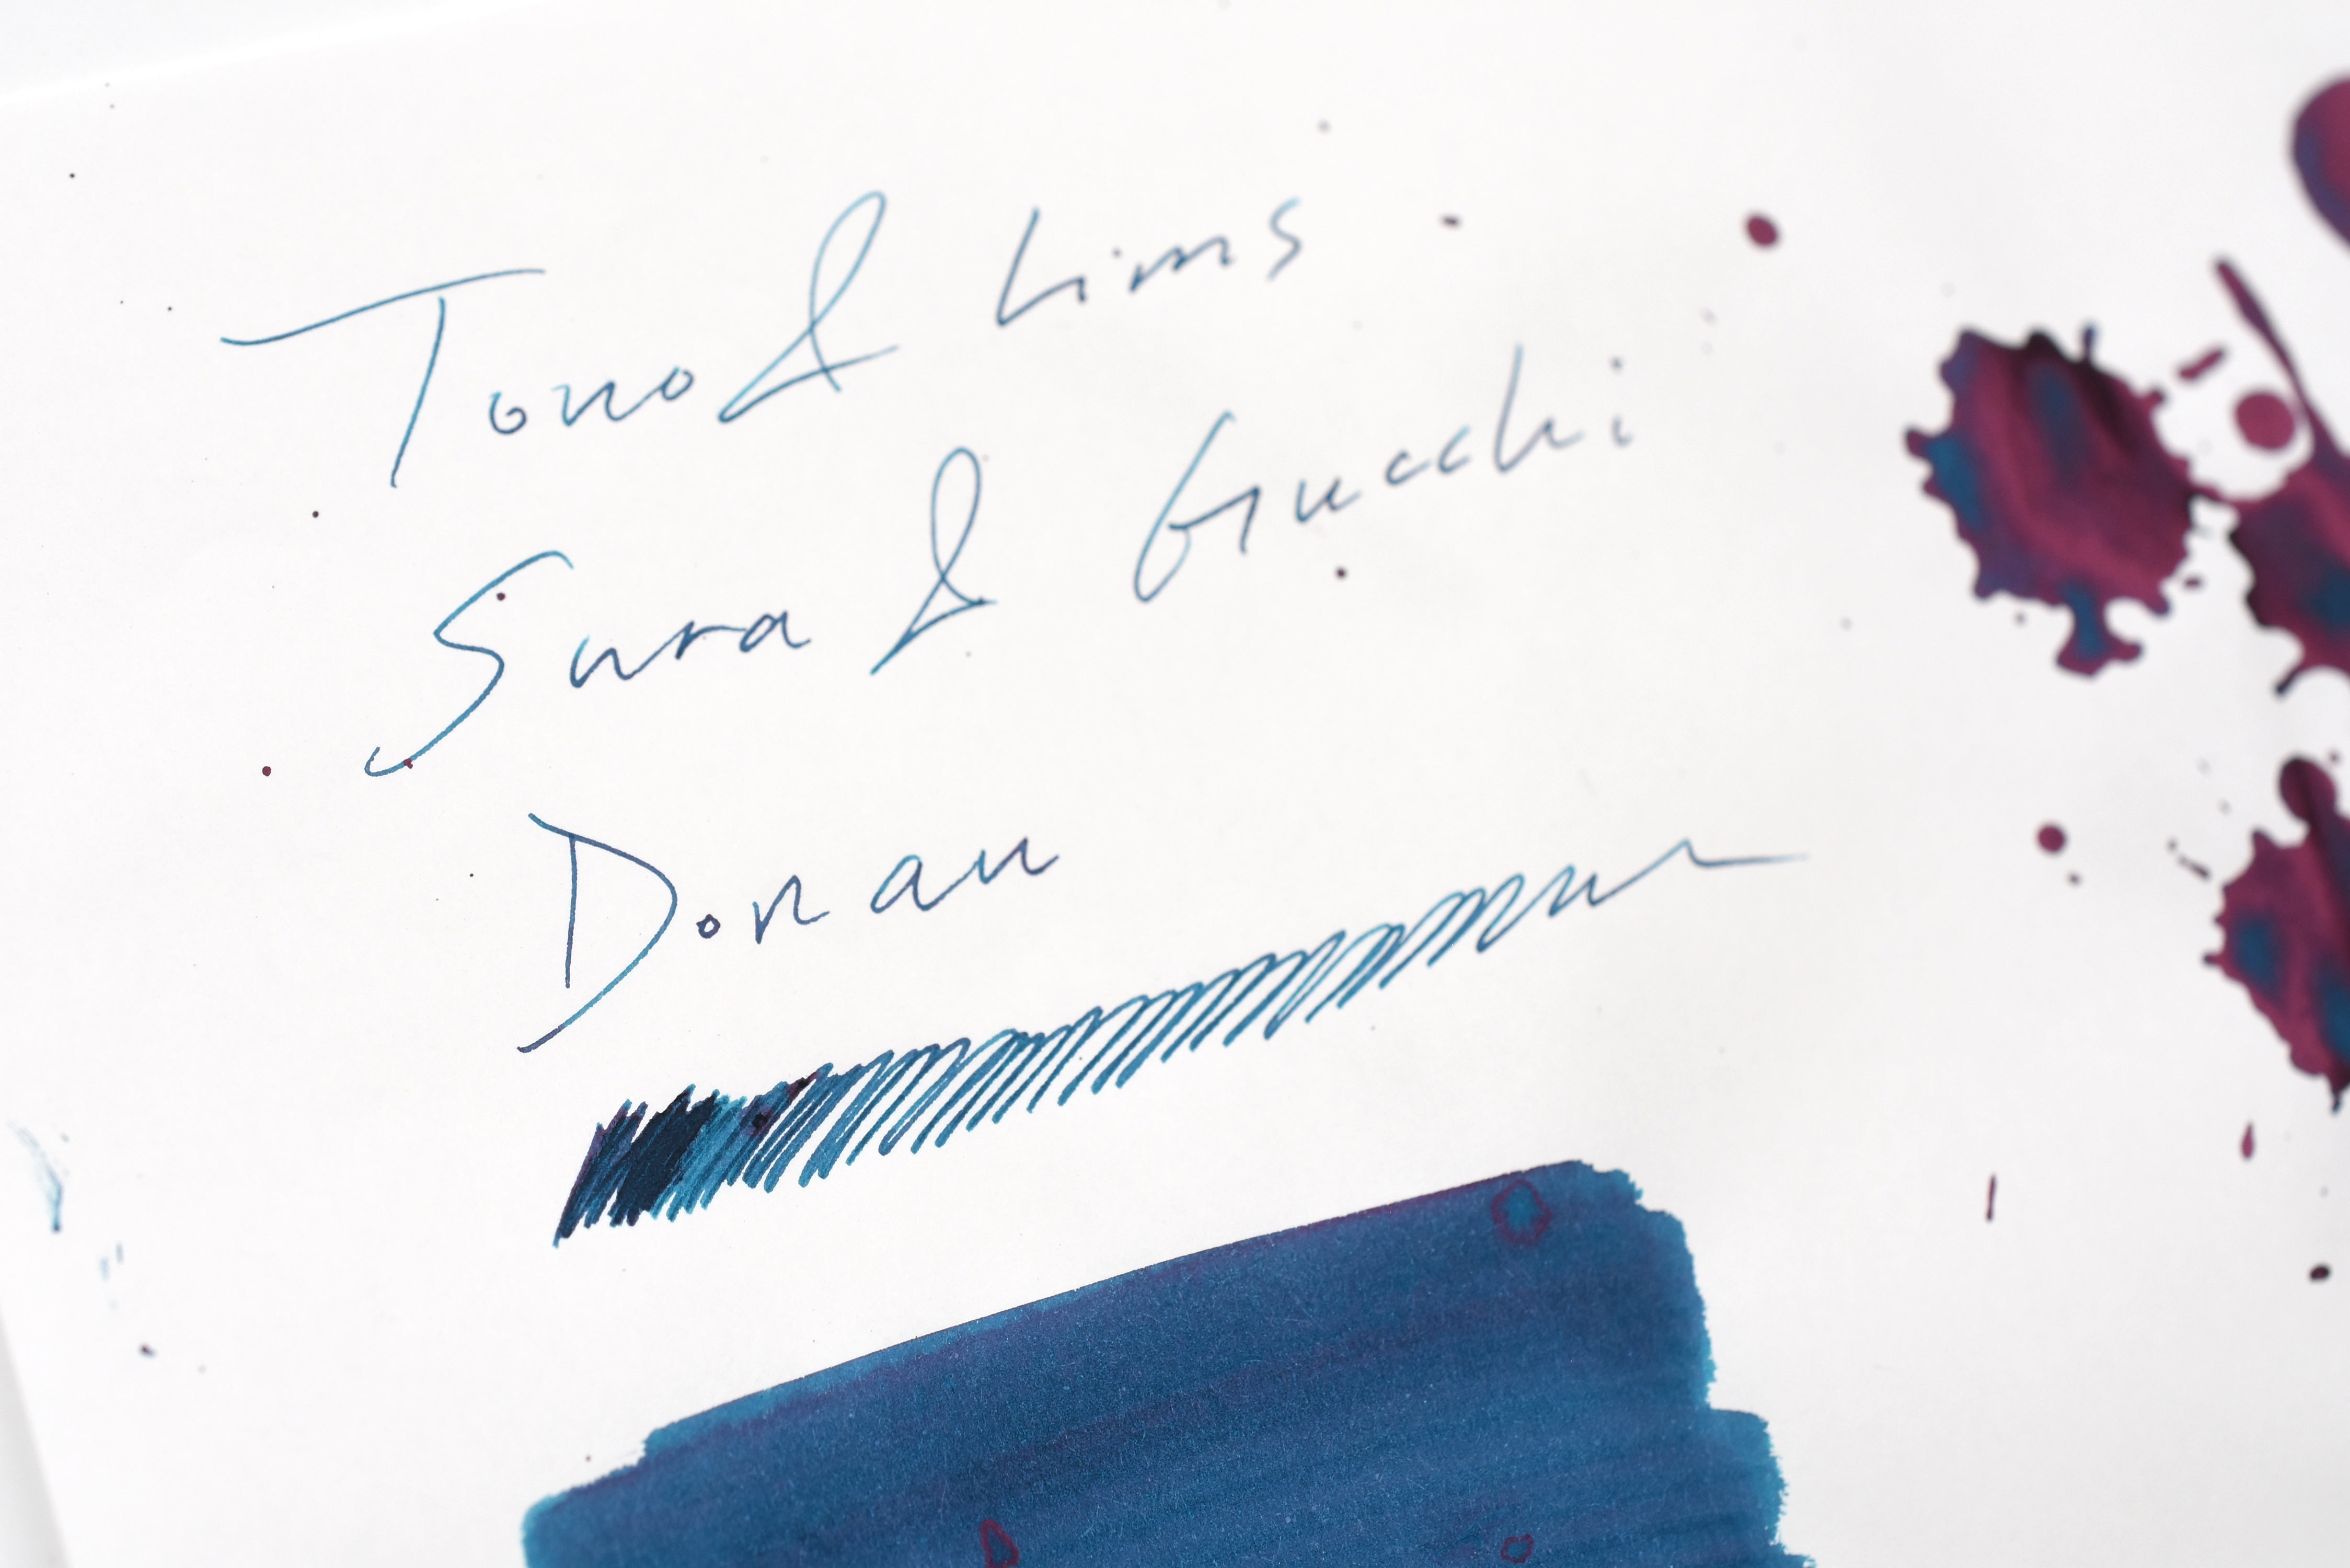 Tono & Lims
Sura & Gucchi
Donau